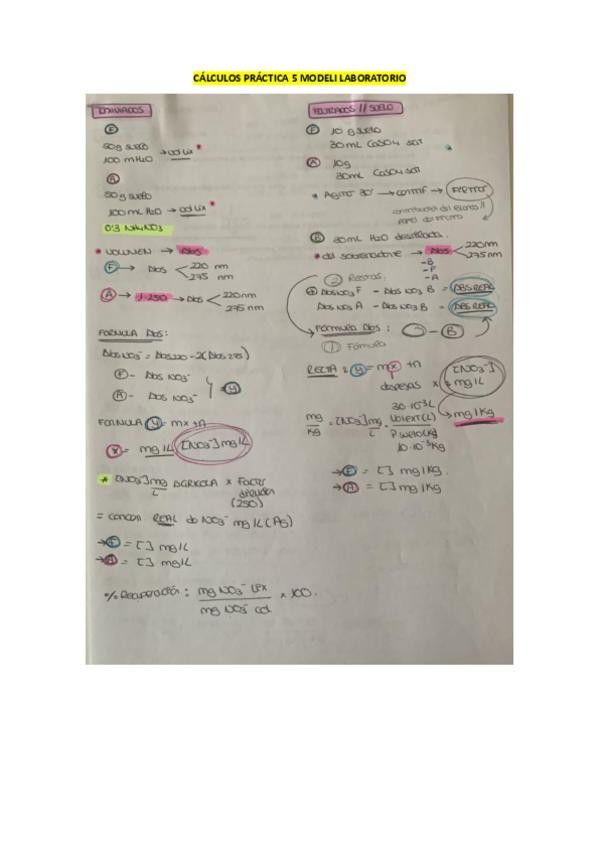 CÁLCULOS PRÁCTICA 5 MODELI LABORATORIO
LIXIVIADOS
F
50g suelo
100 ml H2O → col lix
A
50g suelo
100 mL H2O → col lix
0'3 NH4NO3
VOLUMEN → Abs
F → Abs < 220 nm
275 nm
A → 1:250 → Abs < 220nm
275 nm
FORMULA Abs:
Abs NO3⁻ = Abs220 - 2(Abs 275)
F - Abs NO3⁻
A - Abs NO3⁻
= y
FORMULA y = mx + n
x = mg/L [NO3⁻] mg/L
* [NO3⁻] mg/L AGRICOLA x Factor
dilución
(250)
= concen REAL de NO3⁻ mg/L (Ag)
→ F = [ ] mg/L
→ A = [ ] mg/L
% Recuperación: mg NO3⁻ Lix / mg NO3⁻ col x 100.
FILTRADOS // SUELO
F 10 g suelo
30mL CaSO4 sat
A 10g
30mL CaSO4 sat
Agitar 30' → centrif → FILTRAR
B 30mL H2O destilada.
del sobrenadante → Abs < 220nm
275nm
-B
-F
-A
2 Restas:
Abs NO3 F - Abs NO3 B = ABS REAL
Abs NO3 A - Abs NO3 B = ABS REAL
→ Fórmula Abs: - B
1 Fórmula
RECTA: y = mx + n
[NO3⁻]
despejas x → mg/L
mg/Kg = [NO3⁻] mg/L · 30·10⁻³L Vol ext (L) / P. suelo (Kg) 10·10⁻³Kg
→ mg/Kg
→ F = [ ] mg/Kg.
→ A = [ ] mg/Kg